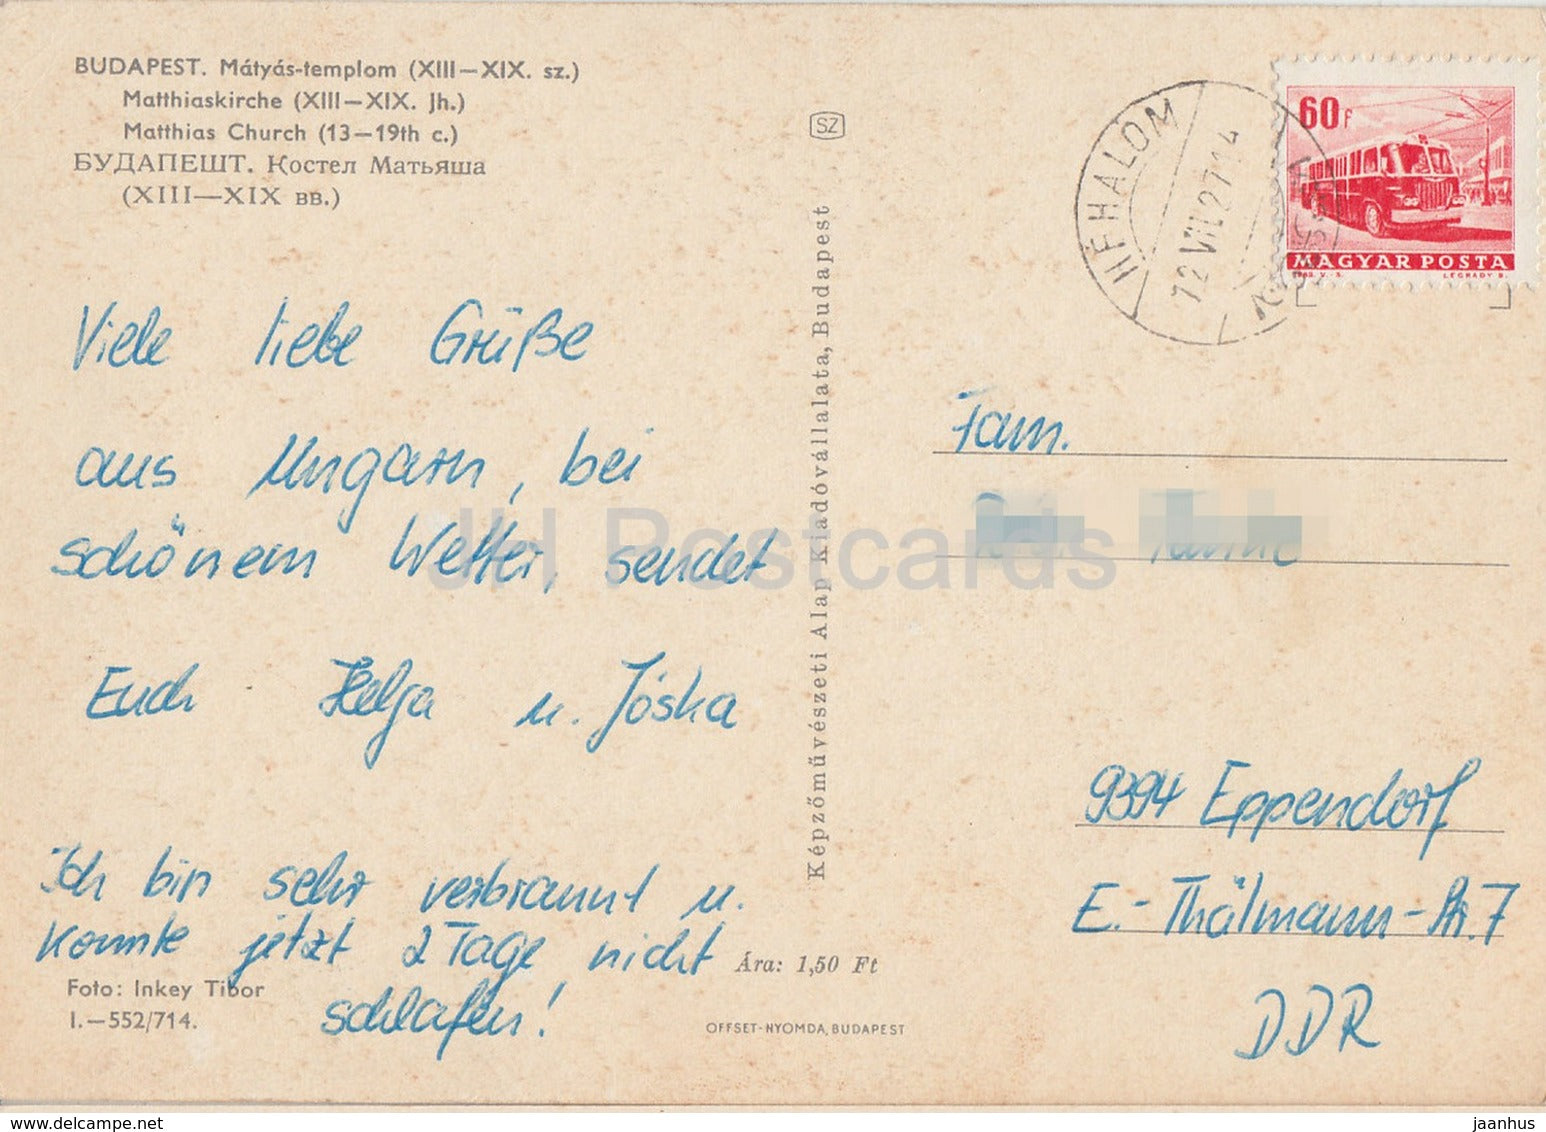 BUDAPEST. Mátyás-templom (XIII—XIX. sz.)
Matthiaskirche (XIII—XIX. Jh.)
Matthias Church (13—19th c.)
БУДАПЕШТ. Костел Матьяша
(XIII—XIX вв.)
SZ
HÉHALOM
72 VII. 27 14
60 f
MAGYAR POSTA
LÉGRÁDY S.
Viele liebe Grüße
aus Ungarn, bei
schönem Wetter, sendet
Euch Helga u. Jóska
Ich bin sehr verbrannt u.
konnte jetzt 2 Tage nicht
schlafen!
Foto: Inkey Tibor
I.—552/714.
Képzőművészeti Alap Kiadóvállalata, Budapest
Ára: 1,50 Ft
OFFSET-NYOMDA, BUDAPEST
Fam.
9394 Eppendorf
E.-Thälmann-Str. 7
DDR
JH Postcards
jaanhus
www.delcampe.net